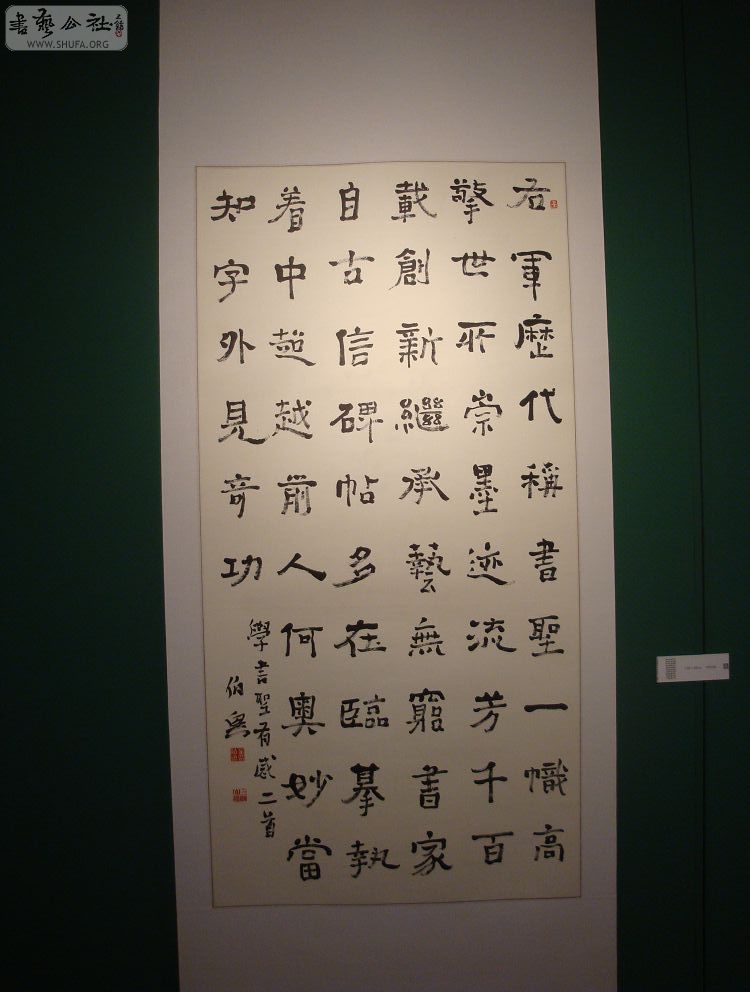 書藝公社
WWW.SHUFA.ORG
右軍歷代稱書聖一幟高
擎世所崇墨迹流芳千百
載創新繼承藝無窮書家
自古信碑帖多在臨摹執
着中超越前人何奧妙當
知字外見奇功
學書聖有感二首
伯